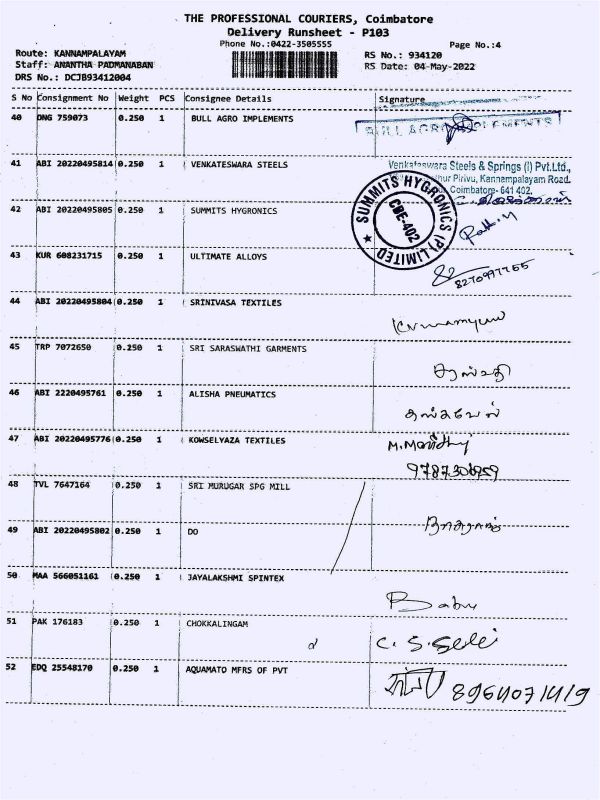 THE PROFESSIONAL COURIERS, Coimbatore
Delivery Runsheet - P103
Phone No.:0422-3505555
Page No.:4
Route: KANNAMPALAYAM
RS No.: 934120
Staff: ANANTHA PADMANABAN
RS Date: 04-May-2022
DRS No.: DCJB93412004
S No Consignment No Weight PCS Consignee Details Signature
40 DNG 759073 0.250 1 BULL AGRO IMPLEMENTS
BULL AGRO IMPLEMENTS
41 ABI 20220495814 0.250 1 VENKATESWARA STEELS
Venkateswara Steels & Springs (I) Pvt.Ltd.,
Pirivu, Kannampalayam Road.
Coimbatore- 641 402.
42 ABI 20220495805 0.250 1 SUMMITS HYGRONICS
SUMMITS HYGRONICS (P) LIMITED
CBE-402
43 KUR 608231715 0.250 1 ULTIMATE ALLOYS
8270977755
44 ABI 20220495804 0.250 1 SRINIVASA TEXTILES
45 TRP 7072650 0.250 1 SRI SARASWATHI GARMENTS
46 ABI 2220495761 0.250 1 ALISHA PNEUMATICS
47 ABI 20220495776 0.250 1 KOWSELYAZA TEXTILES
48 TVL 7647164 0.250 1 SRI MURUGAR SPG MILL
49 ABI 20220495802 0.250 1 DO
50 MAA 566051161 0.250 1 JAYALAKSHMI SPINTEX
Babu
51 PAK 176183 0.250 1 CHOKKALINGAM
52 EDQ 25548170 0.250 1 AQUAMATO MFRS OF PVT